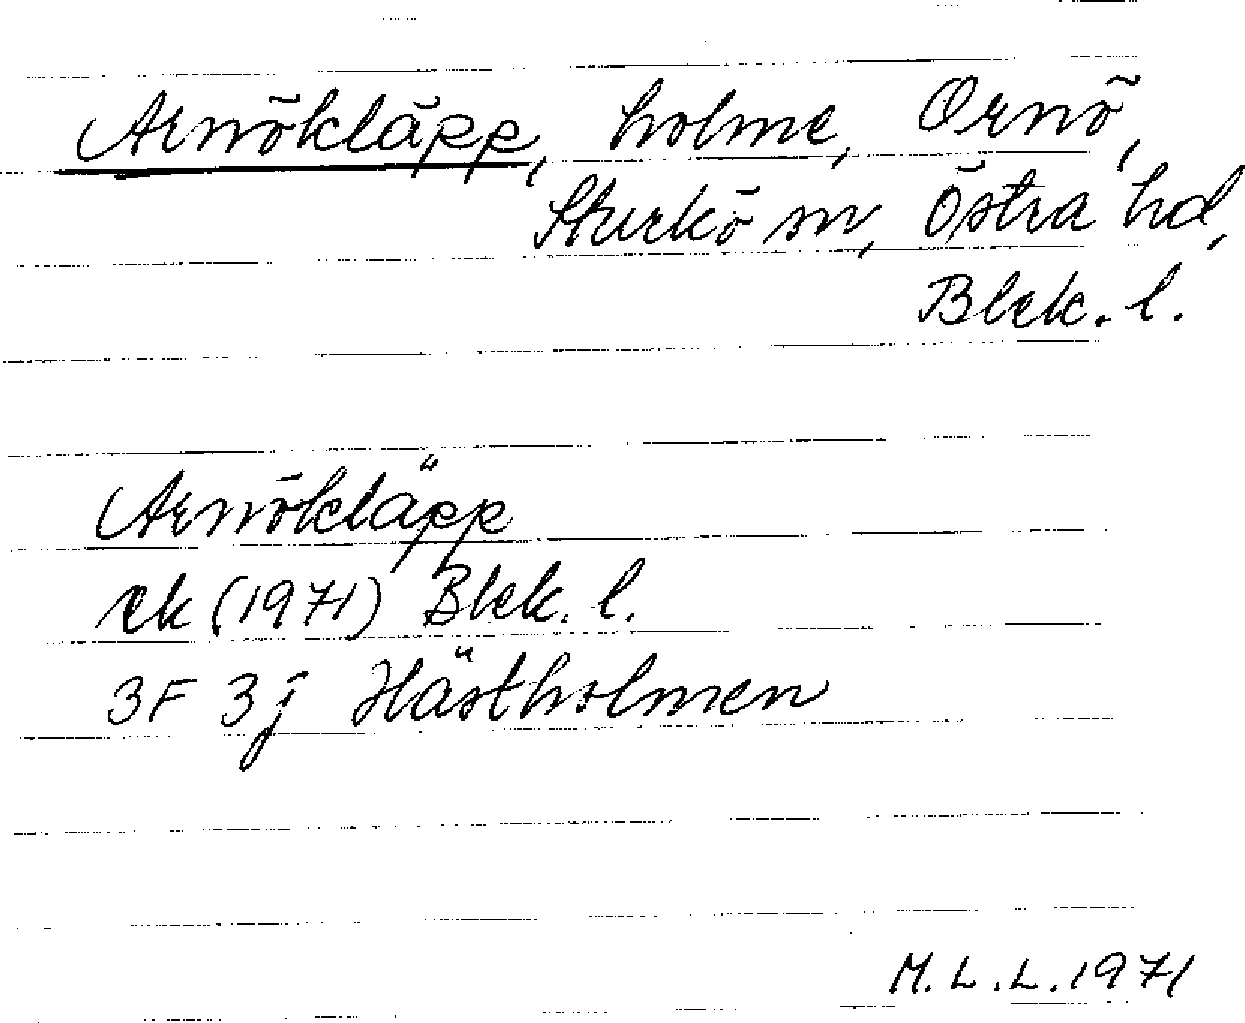 Arnökläpp, holme, Ornö,
Sturkö sn, Östra hd,
Blek. l.
Arnökläpp
ek (1971) Blek. l.
3F 3j Hästholmen
M.L.L. 1971